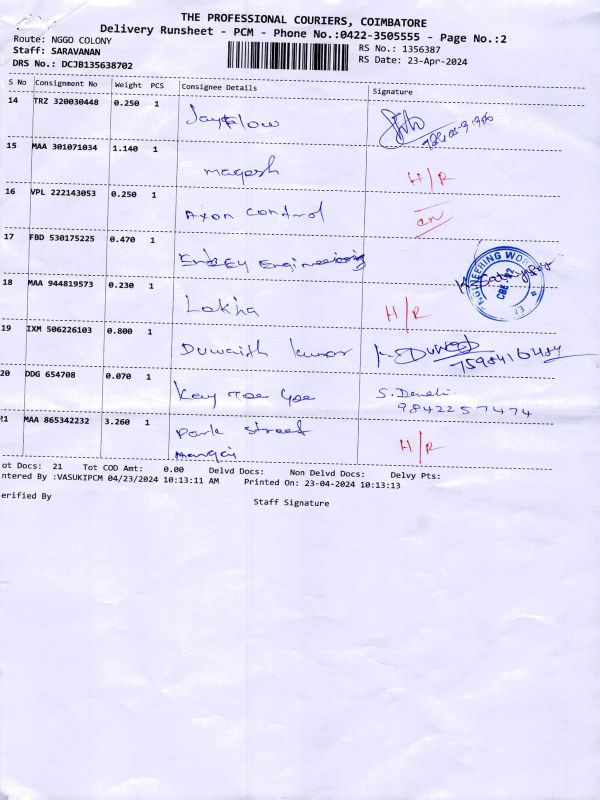 THE PROFESSIONAL COURIERS, COIMBATORE
Delivery Runsheet - PCM - Phone No.:0422-3505555 - Page No.:2
Route: NGGO COLONY
RS No.: 1356387
Staff: SARAVANAN
RS Date: 23-Apr-2024
DRS No.: DCJB135638702
S No Consignment No Weight PCS Consignee Details Signature
14 TRZ 320030448 0.250 1
Jayflow
15 MAA 301071034 1.140 1
magesh H/R
16 VPL 222143053 0.250 1
Axon control
17 FBD 530175225 0.470 1
Engineering
ENGINEERING WOR
CBE
18 MAA 944819573 0.230 1
Lakha H/R
19 IXM 506226103 0.800 1
kumar
7598416484
20 DDG 654708 0.070 1
S. Devaki
9842257474
21 MAA 865342232 3.260 1
Park street
H/R
ot Docs: 21 Tot COD Amt: 0.00 Delvd Docs: Non Delvd Docs: Delvy Pts:
ntered By :VASUKIPCM 04/23/2024 10:13:11 AM Printed On: 23-04-2024 10:13:13
erified By
Staff Signature